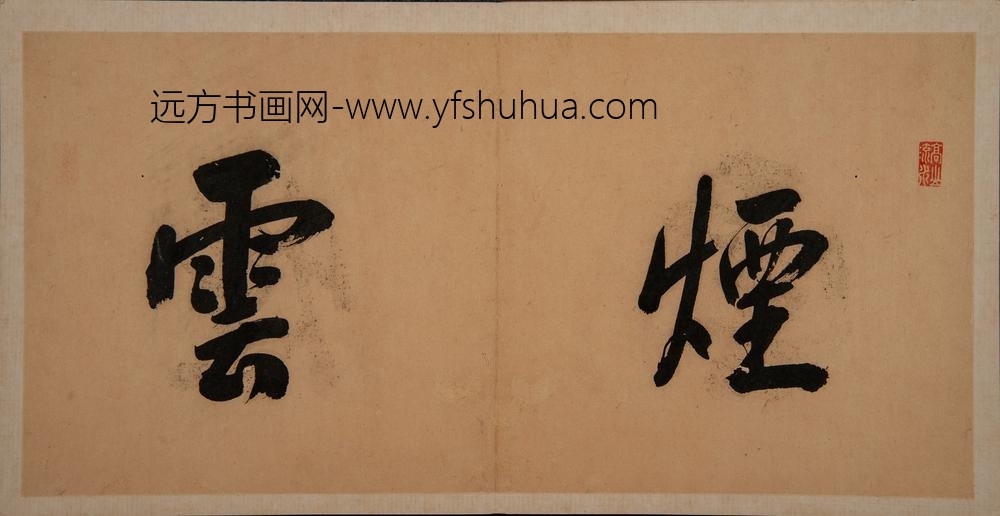 远方书画网-www.yfshuhua.com
煙雲
高山流水